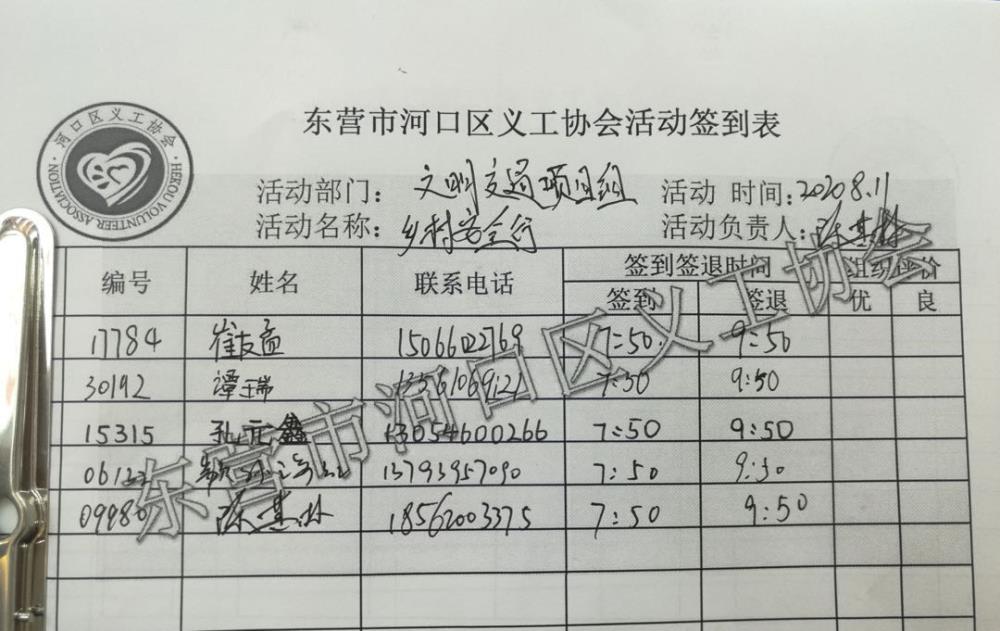 东营市河口区义工协会活动签到表
河口区义工协会
HEKOU VOLUNTEER ASSOCIATION
活动部门: 文明交通项目组 活动 时间: 2020 8.11
活动名称: 乡村安全行 活动负责人: 陈其林
编号 姓名 联系电话 签到签退时间 组织评价
签到 签退 优 良
17784 崔友益 15066022769 7:50 9:50
30192 谭瑞 7:50 9:50
15315 孔元鑫 13054600266 7:50 9:50
13793957090 7:50 9:50
陈其林 18562003375 7:50 9:50
东营市河口区义工协会